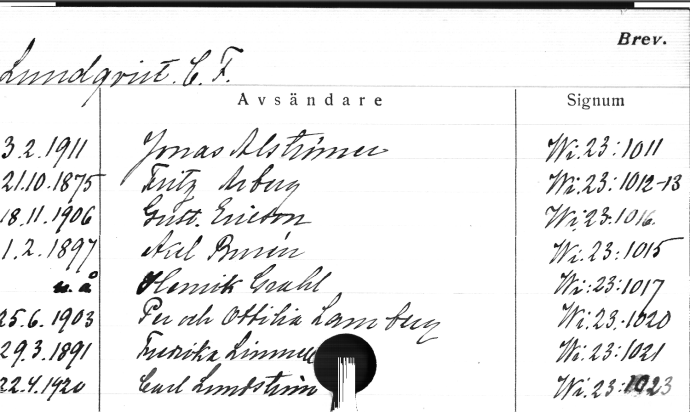 Brev.
Lundqvist. C. F.
Avsändare Signum
3.2.1911 Jonas Alströmer Wi.23:1011
21.10.1875 Fritz Arberg Wi.23:1012-13
18.11.1906 Gust. Ericson Wi.23:1016.
1.2.1897 Axel Burén Wi.23:1015
u.å Henrik Grahl Wi:23:1017
25.6.1903 Per och Ottilia Lamberg Wi.23.1020
29.3.1891 Fredrika Limnell Wi.23:1021
22.4.1920 Carl Lundström Wi.23:1023